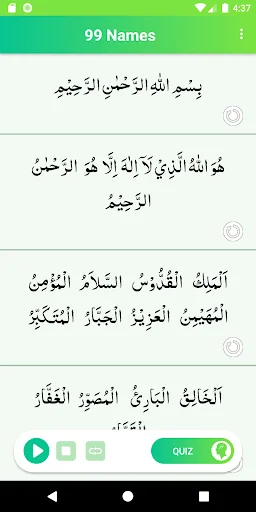 4:37
99 Names
بِسْمِ اللهِ الرَّحْمٰنِ الرَّحِيْمِ
هُوَ اللهُ الَّذِيْ لَآ اِلٰهَ اِلَّا هُوَ الرَّحْمٰنُ
الرَّحِيْمُ
اَلْمَلِكُ الْقُدُّوْسُ السَّلَامُ الْمُؤْمِنُ
الْمُهَيْمِنُ الْعَزِيْزُ الْجَبَّارُ الْمُتَكَبِّرُ
اَلْخَالِقُ الْبَارِئُ الْمُصَوِّرُ الْغَفَّارُ
QUIZ